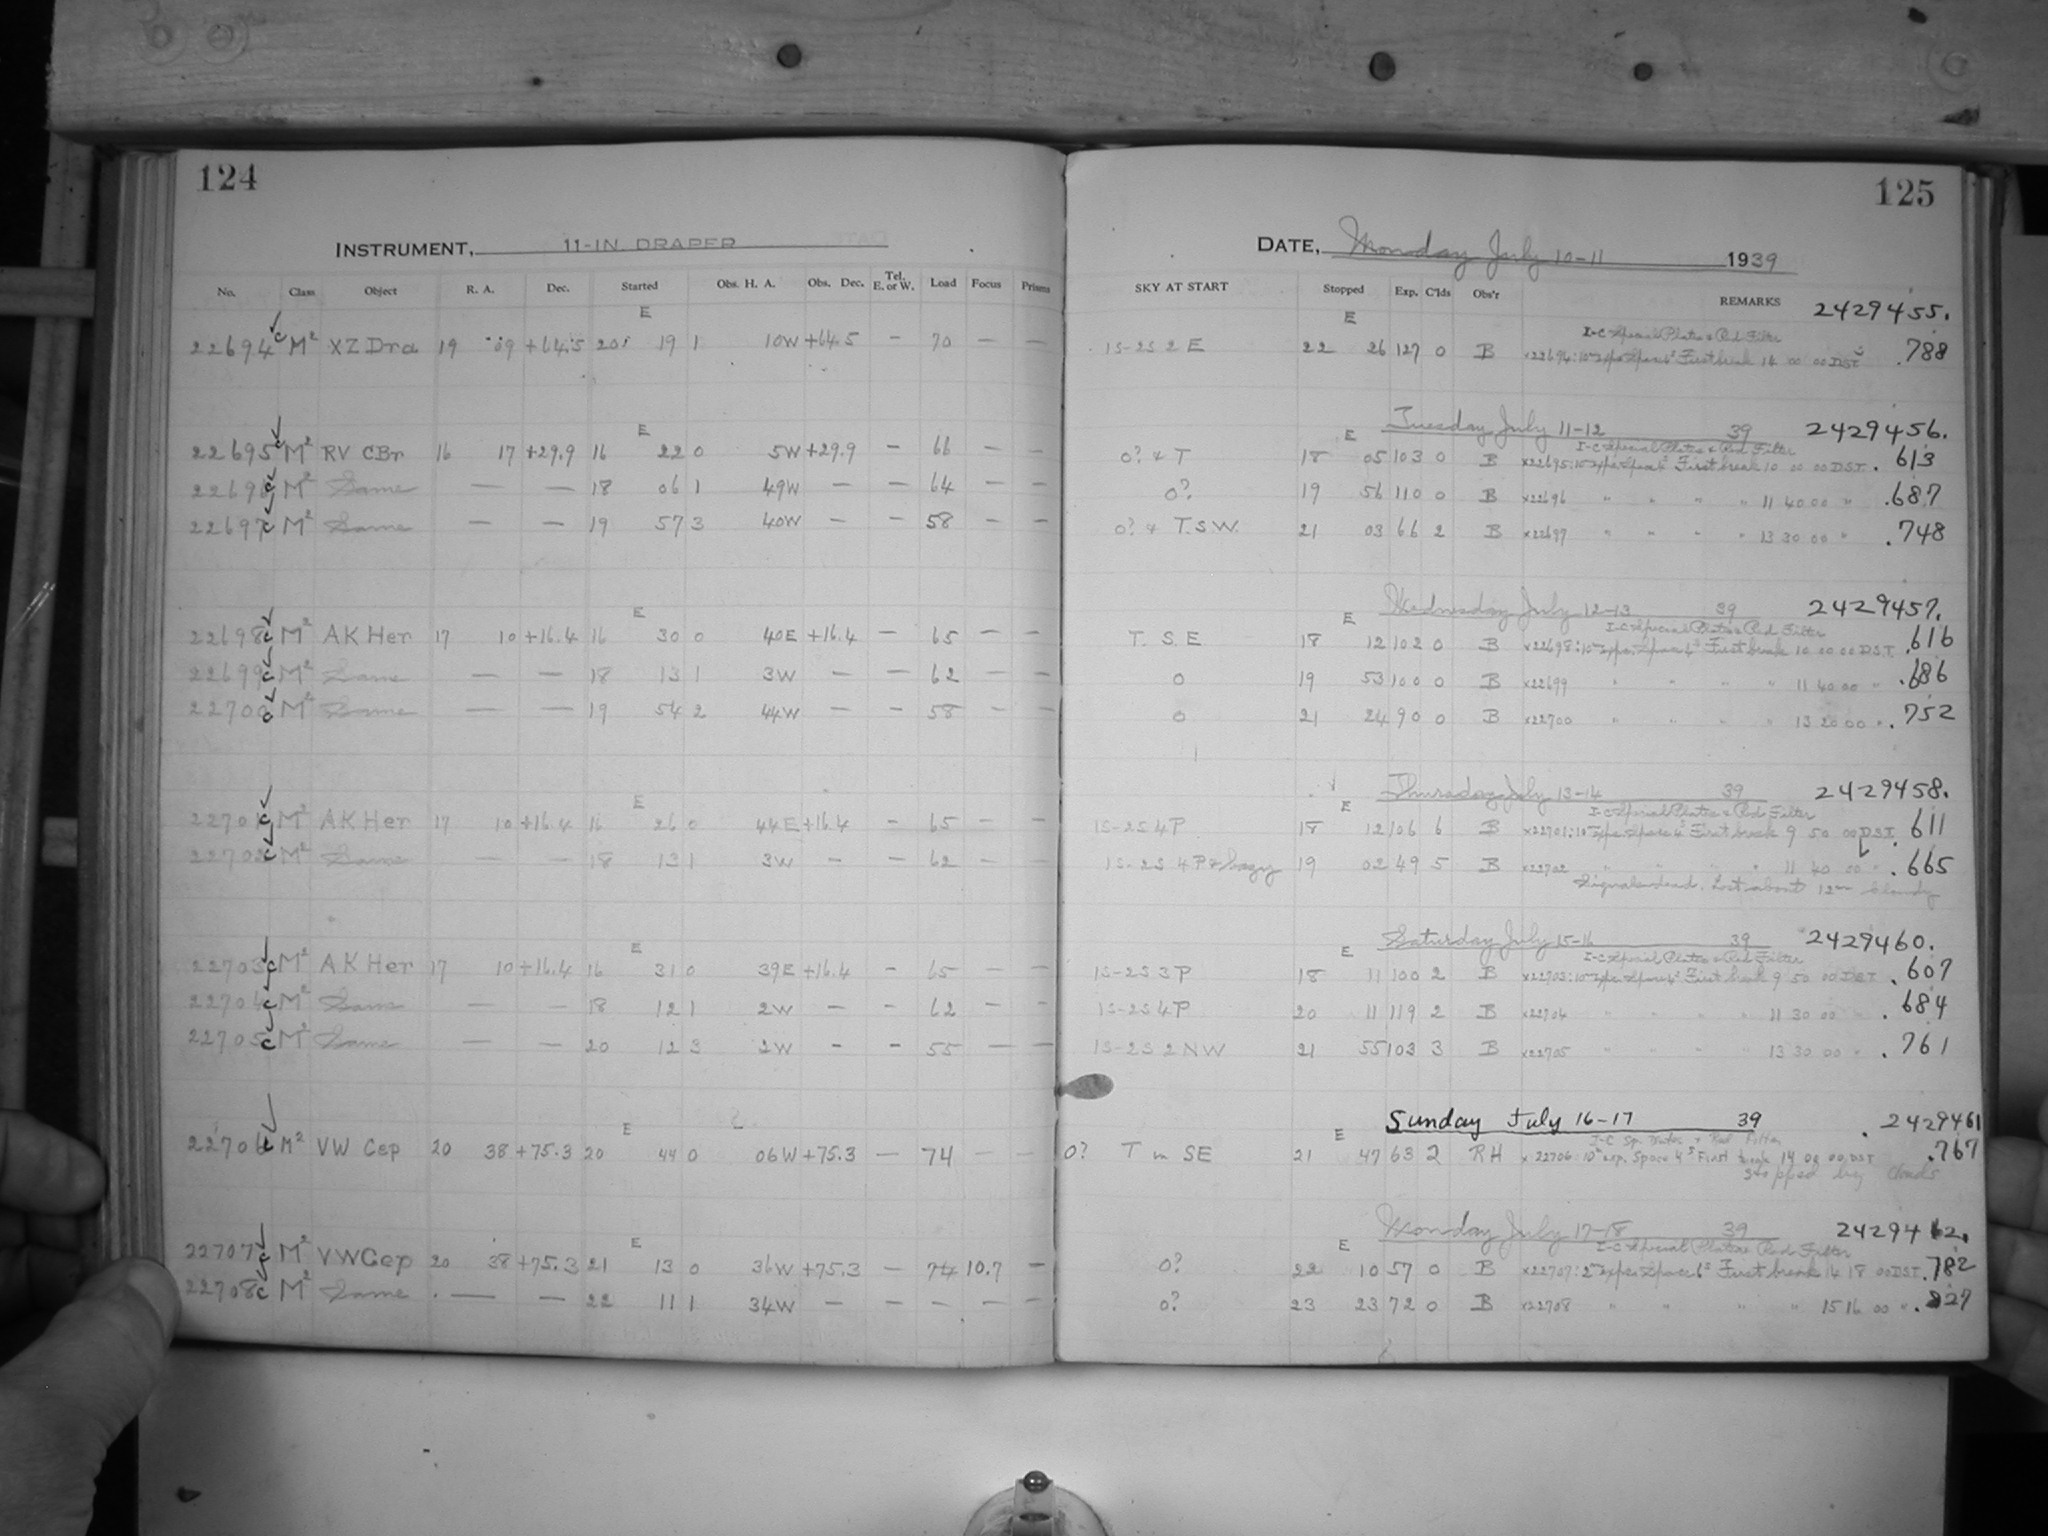 124
INSTRUMENT, 11-IN. DRAPER
No. Class Object R. A. Dec. Started Obs. H. A. Obs. Dec. Tel. E. or W. Load Focus Prisms
E
22694 c M² XZ Dra 19 09 +64.5 20 19 1 10W +64.5 — 70 — —
E
22695 c M² RV CBr 16 17 +29.9 16 22 0 5W +29.9 — 66 — —
22696 c M² Same — — 18 06 1 49W — — 64 — —
22697 c M² Same — — 19 57 3 40W — — 58 — —
E
22698 c M² AK Her 17 10 +16.4 16 30 0 40E +16.4 — 65 — —
22699 c M² Same — — 18 13 1 3W — — 62 — —
22700 c M² Same — — 19 54 2 44W — — 58 — —
E
22701 c M² AK Her 17 10 +16.4 16 26 0 44E +16.4 — 65 — —
22702 c M² Same — — 18 13 1 3W — — 62 — —
E
22703 c M² AK Her 17 10 +16.4 16 31 0 39E +16.4 — 65 — —
22704 c M² Same — — 18 12 1 2W — — 62 — —
22705 c M² Same — — 20 12 3 2W — — 55 — —
E
22706 c M² VW Cep 20 38 +75.3 20 44 0 06W +75.3 — 74 — —
E
22707 c M² VW Cep 20 38 +75.3 21 13 0 36W +75.3 — 74 10.7 —
22708 c M² Same — — 22 11 1 34W — — — — —
125
DATE, Monday July 10-11 1939
SKY AT START Stopped Exp. C'lds Obs'r REMARKS 2429455.
E I-C Special Plates & Red Filter
1S-2S 2 E 22 26 127 0 B x22694: 10ᵐ exps. Space 4ˢ First break 14 00 00 DST .788
Tuesday July 11-12 39 2429456.
E I-C Special Plates & Red Filter
0? & T 18 05 103 0 B x22695: 10ᵐ exps. Space 4ˢ First break 10 00 00 DST. .613
0? 19 56 110 0 B x22696 " " " " 11 40 00 " .687
0? & T. S.W. 21 03 66 2 B x22697 " " " " 13 30 00 " .748
Wednesday July 12-13 39 2429457.
E I-C Special Plates & Red Filter
T. S. E 18 12 102 0 B x22698: 10ᵐ exps. Space 4ˢ First break 10 00 00 DST. .616
0 19 53 100 0 B x22699 " " " " 11 40 00 " .686
0 21 24 90 0 B x22700 " " " " 13 20 00 " .752
Thursday July 13-14 39 2429458.
E I-C Special Plates & Red Filter
1S-2S 4P 18 12 106 6 B x22701: 10ᵐ exps. Space 4ˢ First break 9 50 00 DST. .611
1S-2S 4P & Hazy 19 02 49 5 B x22702 " " " " 11 40 00 " .665
Lost about 12ᵐ cloudy
Saturday July 15-16 39 2429460.
E I-C Special Plates & Red Filter
1S-2S 3P 18 11 100 2 B x22703: 10ᵐ exps. Space 4ˢ First break 9 50 00 DST .607
1S-2S 4P 20 11 119 2 B x22704 " " " " 11 30 00 " .684
1S-2S 2 NW 21 55 103 3 B x22705 " " " " 13 30 00 " .761
Sunday July 16-17 39 2429461
E I-C Sp. Plates & Red Filter
0? T in SE 21 47 63 2 RH x22706: 10ᵐ exp. Space 4ˢ First break 14 00 00 DST .767
Stopped by clouds
Monday July 17-18 39 2429462.
E I-C Special Plates Red Filter
0? 22 10 57 0 B x22707: 2ᵐ exps. Space 6ˢ First break 14 18 00 DST. .782
0? 23 23 72 0 B x22708 " " " " 15 16 00 " .827